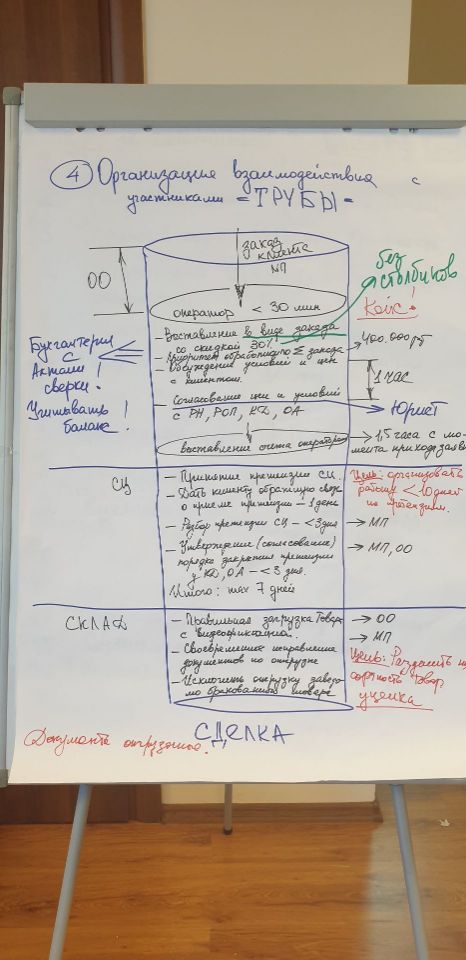 4 Организация взаимодействия с
участниками "ТРУБЫ"
заказ
клиента
МП
ОО
оператор < 30 мин
без
столбиков
Кейс!
- Выставление в виде заказа
со скидкой 30%
обработки по Σ заказа
→ 400.000 руб
- Обсуждение условий и цен
с клиентом.
1 час
Бухгалтерия
с
Актами
сверки!
Учитывать
баланс!
- Согласование цен и условий
с РН, РОП, КД, ОА
Юрист
выставление счета оператором
→ 1,5 часа с мо-
мента прихода заявки
СЦ
- Принятие претензии СЦ.
- Дать клиенту обратную связь
о приеме претензии - 1 день
- Разбор претензии СЦ - < 3 дня
→ МП
- Утверждение (согласование)
порядка закрытия претензии
у КД, ОА - < 3 дня.
→ МП, ОО
Итого: max 7 дней
Цель: организовать
работу < 10 дней
по претензиям.
СКЛАД
- Правильная загрузка товара
с видеофиксацией.
→ ОО
→ МП
- Своевременное направление
документов по отгрузке
- Исключить отгрузку заведо-
мо бракованного товара
Цель: Разделить на
сортность товар
уценка
СДЕЛКА
Документы отгрузочные.